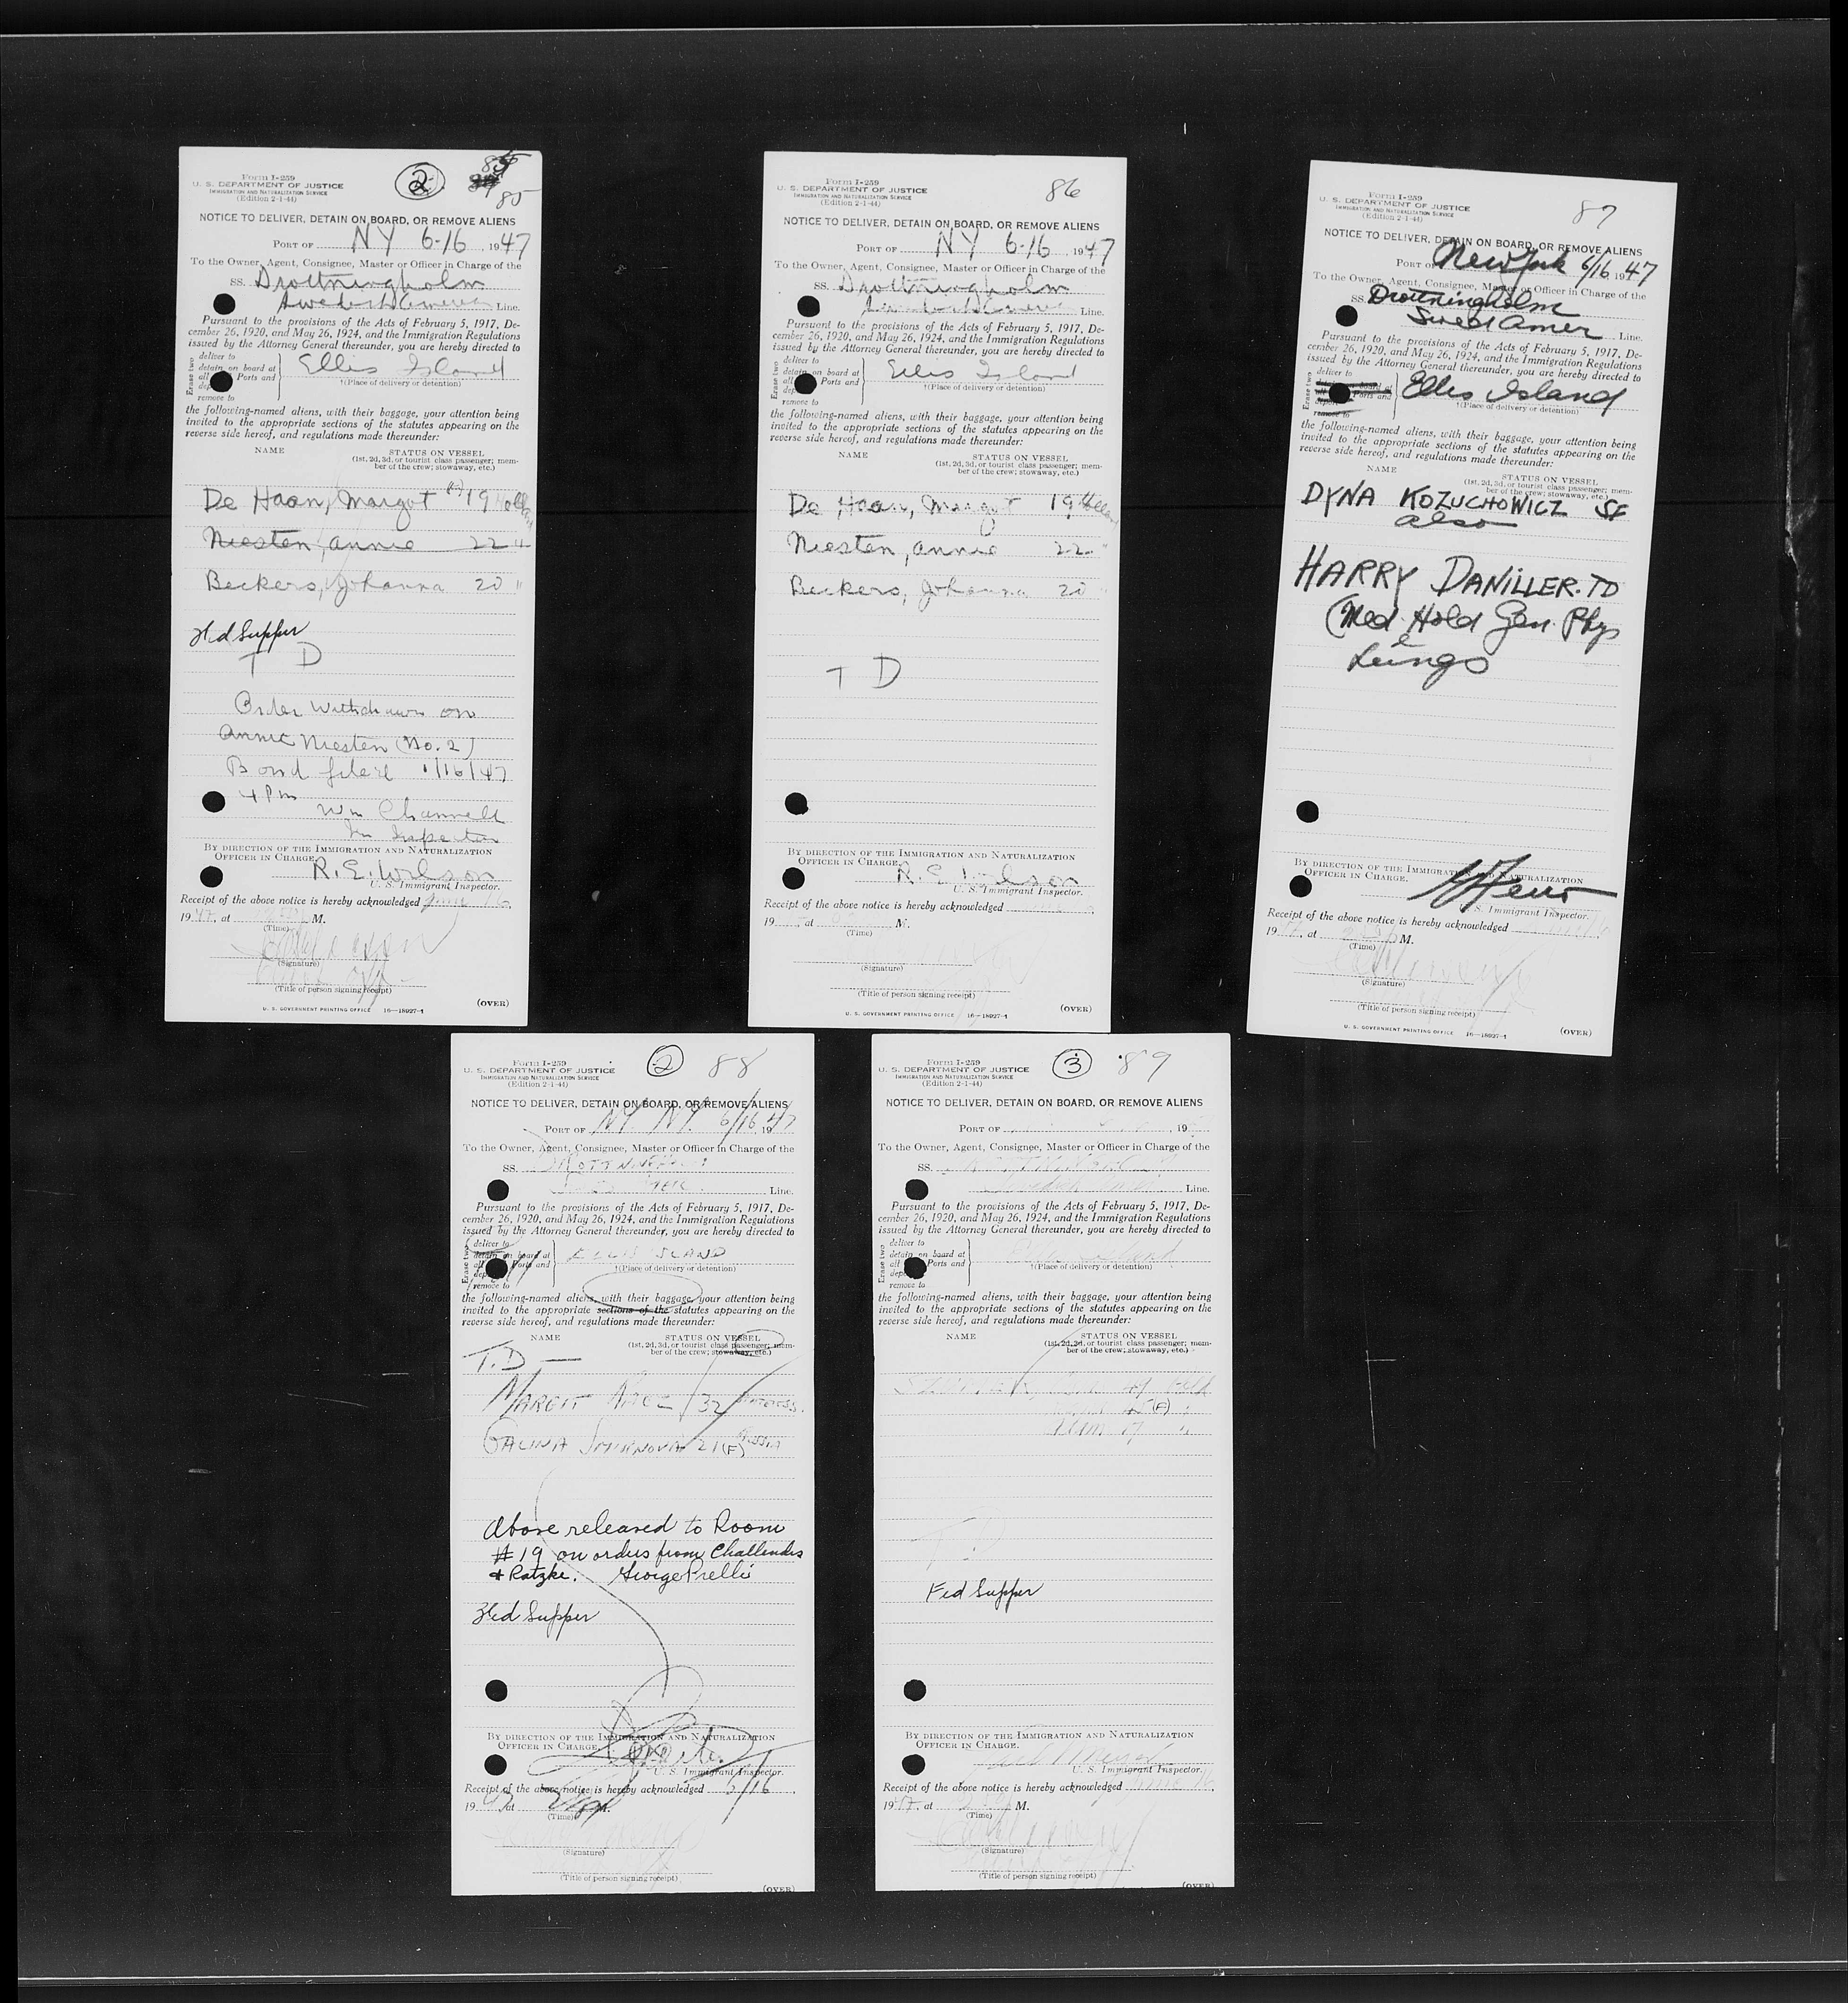 Form I-259
U. S. DEPARTMENT OF JUSTICE
IMMIGRATION AND NATURALIZATION SERVICE
(Edition 2-1-44)
2
85
85
NOTICE TO DELIVER, DETAIN ON BOARD, OR REMOVE ALIENS
PORT OF NY 6-16, 1947
To the Owner, Agent, Consignee, Master or Officer in Charge of the
SS. Drottningholm
Line.
Pursuant to the provisions of the Acts of February 5, 1917, De-
cember 26, 1920, and May 26, 1924, and the Immigration Regulations
issued by the Attorney General thereunder, you are hereby directed to
Erase two
deliver to
detain on board at
all Ports and
remove to
Ellis Island
†(Place of delivery or detention)
the following-named aliens, with their baggage, your attention being
invited to the appropriate sections of the statutes appearing on the
reverse side hereof, and regulations made thereunder:
NAME STATUS ON VESSEL
(1st, 2d, 3d, or tourist class passenger; mem-
ber of the crew; stowaway, etc.)
De Haan, Margot (F) 19 Holland
Niesten, Annie 22 "
Beckers, Johanna 20 "
Fed Supper
T D
Order Withdrawn on
Annie Niesten (No. 2)
Bond filed /16/47
4 Pm
Wm Channell
Im Inspector
BY DIRECTION OF THE IMMIGRATION AND NATURALIZATION
OFFICER IN CHARGE.
R. E. Wilson
U. S. Immigrant Inspector.
Receipt of the above notice is hereby acknowledged June 16,
1947, at M.
(Time)
(Signature)
(Title of person signing receipt)
U. S. GOVERNMENT PRINTING OFFICE 16—18927-1
(OVER)
Form I-259
U. S. DEPARTMENT OF JUSTICE
IMMIGRATION AND NATURALIZATION SERVICE
(Edition 2-1-44)
86
NOTICE TO DELIVER, DETAIN ON BOARD, OR REMOVE ALIENS
PORT OF NY 6-16, 1947
To the Owner, Agent, Consignee, Master or Officer in Charge of the
SS. Drottningholm
Line.
Pursuant to the provisions of the Acts of February 5, 1917, De-
cember 26, 1920, and May 26, 1924, and the Immigration Regulations
issued by the Attorney General thereunder, you are hereby directed to
Erase two
deliver to
detain on board at
all Ports and
remove to
Ellis Island
†(Place of delivery or detention)
the following-named aliens, with their baggage, your attention being
invited to the appropriate sections of the statutes appearing on the
reverse side hereof, and regulations made thereunder:
NAME STATUS ON VESSEL
(1st, 2d, 3d, or tourist class passenger; mem-
ber of the crew; stowaway, etc.)
De Haan, Margot 19 Holland
Niesten, Annie 22 "
Beckers, Johanna 20 "
T D
BY DIRECTION OF THE IMMIGRATION AND NATURALIZATION
OFFICER IN CHARGE.
R. E. Wilson
U. S. Immigrant Inspector.
Receipt of the above notice is hereby acknowledged
19 , at M.
(Time)
(Signature)
(Title of person signing receipt)
U. S. GOVERNMENT PRINTING OFFICE 16—18927-1
(OVER)
Form I-259
U. S. DEPARTMENT OF JUSTICE
IMMIGRATION AND NATURALIZATION SERVICE
(Edition 2-1-44)
87
NOTICE TO DELIVER, DETAIN ON BOARD, OR REMOVE ALIENS
PORT OF New York 6/16 1947
To the Owner, Agent, Consignee, Master or Officer in Charge of the
SS Drottningholm
Swed Amer Line.
Pursuant to the provisions of the Acts of February 5, 1917, De-
cember 26, 1920, and May 26, 1924, and the Immigration Regulations
issued by the Attorney General thereunder, you are hereby directed to
Erase two
deliver to
board at
Ports and
remove to
Ellis Island
†(Place of delivery or detention)
the following-named aliens, with their baggage, your attention being
invited to the appropriate sections of the statutes appearing on the
reverse side hereof, and regulations made thereunder:
NAME STATUS ON VESSEL
(1st, 2d, 3d, or tourist class passenger; mem-
ber of the crew; stowaway, etc.)
DYNA KOZUCHOWICZ SF
also
HARRY DANILLER. TD
(Med. Hold Gen. Phys
&
Lungs
BY DIRECTION OF THE IMMIGRATION AND NATURALIZATION
OFFICER IN CHARGE.
U. S. Immigrant Inspector.
Receipt of the above notice is hereby acknowledged
1947, at M.
(Time)
(Signature)
(Title of person signing receipt)
U. S. GOVERNMENT PRINTING OFFICE 16—18927-1
(OVER)
Form I-259
U. S. DEPARTMENT OF JUSTICE
IMMIGRATION AND NATURALIZATION SERVICE
(Edition 2-1-44)
2
88
NOTICE TO DELIVER, DETAIN ON BOARD, OR REMOVE ALIENS
PORT OF NY. NY. 6/16, 1947
To the Owner, Agent, Consignee, Master or Officer in Charge of the
SS.
Line.
Pursuant to the provisions of the Acts of February 5, 1917, De-
cember 26, 1920, and May 26, 1924, and the Immigration Regulations
issued by the Attorney General thereunder, you are hereby directed to
Erase two
deliver to
detain on board at
all Ports and
remove to
ELLIS ISLAND
†(Place of delivery or detention)
the following-named aliens, with their baggage, your attention being
invited to the appropriate sections of the statutes appearing on the
reverse side hereof, and regulations made thereunder:
NAME STATUS ON VESSEL
(1st, 2d, 3d, or tourist class passenger; mem-
ber of the crew; stowaway, etc.)
T.D —
MARGIT 32
GALINA SMIRNOVA 21 (F) RUSSIA
Above released to Room
#19 on orders from Challendes
& Ratzke. George Prelli
Fed Supper
BY DIRECTION OF THE IMMIGRATION AND NATURALIZATION
OFFICER IN CHARGE.
U. S. Immigrant Inspector.
Receipt of the above notice is hereby acknowledged 6/16,
1947, at M.
(Time)
(Signature)
(Title of person signing receipt)
(OVER)
Form I-259
U. S. DEPARTMENT OF JUSTICE
IMMIGRATION AND NATURALIZATION SERVICE
(Edition 2-1-44)
3
89
NOTICE TO DELIVER, DETAIN ON BOARD, OR REMOVE ALIENS
PORT OF , 19
To the Owner, Agent, Consignee, Master or Officer in Charge of the
SS.
Swedish Line.
Pursuant to the provisions of the Acts of February 5, 1917, De-
cember 26, 1920, and May 26, 1924, and the Immigration Regulations
issued by the Attorney General thereunder, you are hereby directed to
Erase two
deliver to
detain on board at
all Ports and
remove to
Ellis Island
†(Place of delivery or detention)
the following-named aliens, with their baggage, your attention being
invited to the appropriate sections of the statutes appearing on the
reverse side hereof, and regulations made thereunder:
NAME STATUS ON VESSEL
(1st, 2d, 3d, or tourist class passenger; mem-
ber of the crew; stowaway, etc.)
49
45 (F) "
17 "
T.D
Fed Supper
BY DIRECTION OF THE IMMIGRATION AND NATURALIZATION
OFFICER IN CHARGE.
U. S. Immigrant Inspector.
Receipt of the above notice is hereby acknowledged June 16,
1947, at M.
(Time)
(Signature)
(Title of person signing receipt)
(OVER)